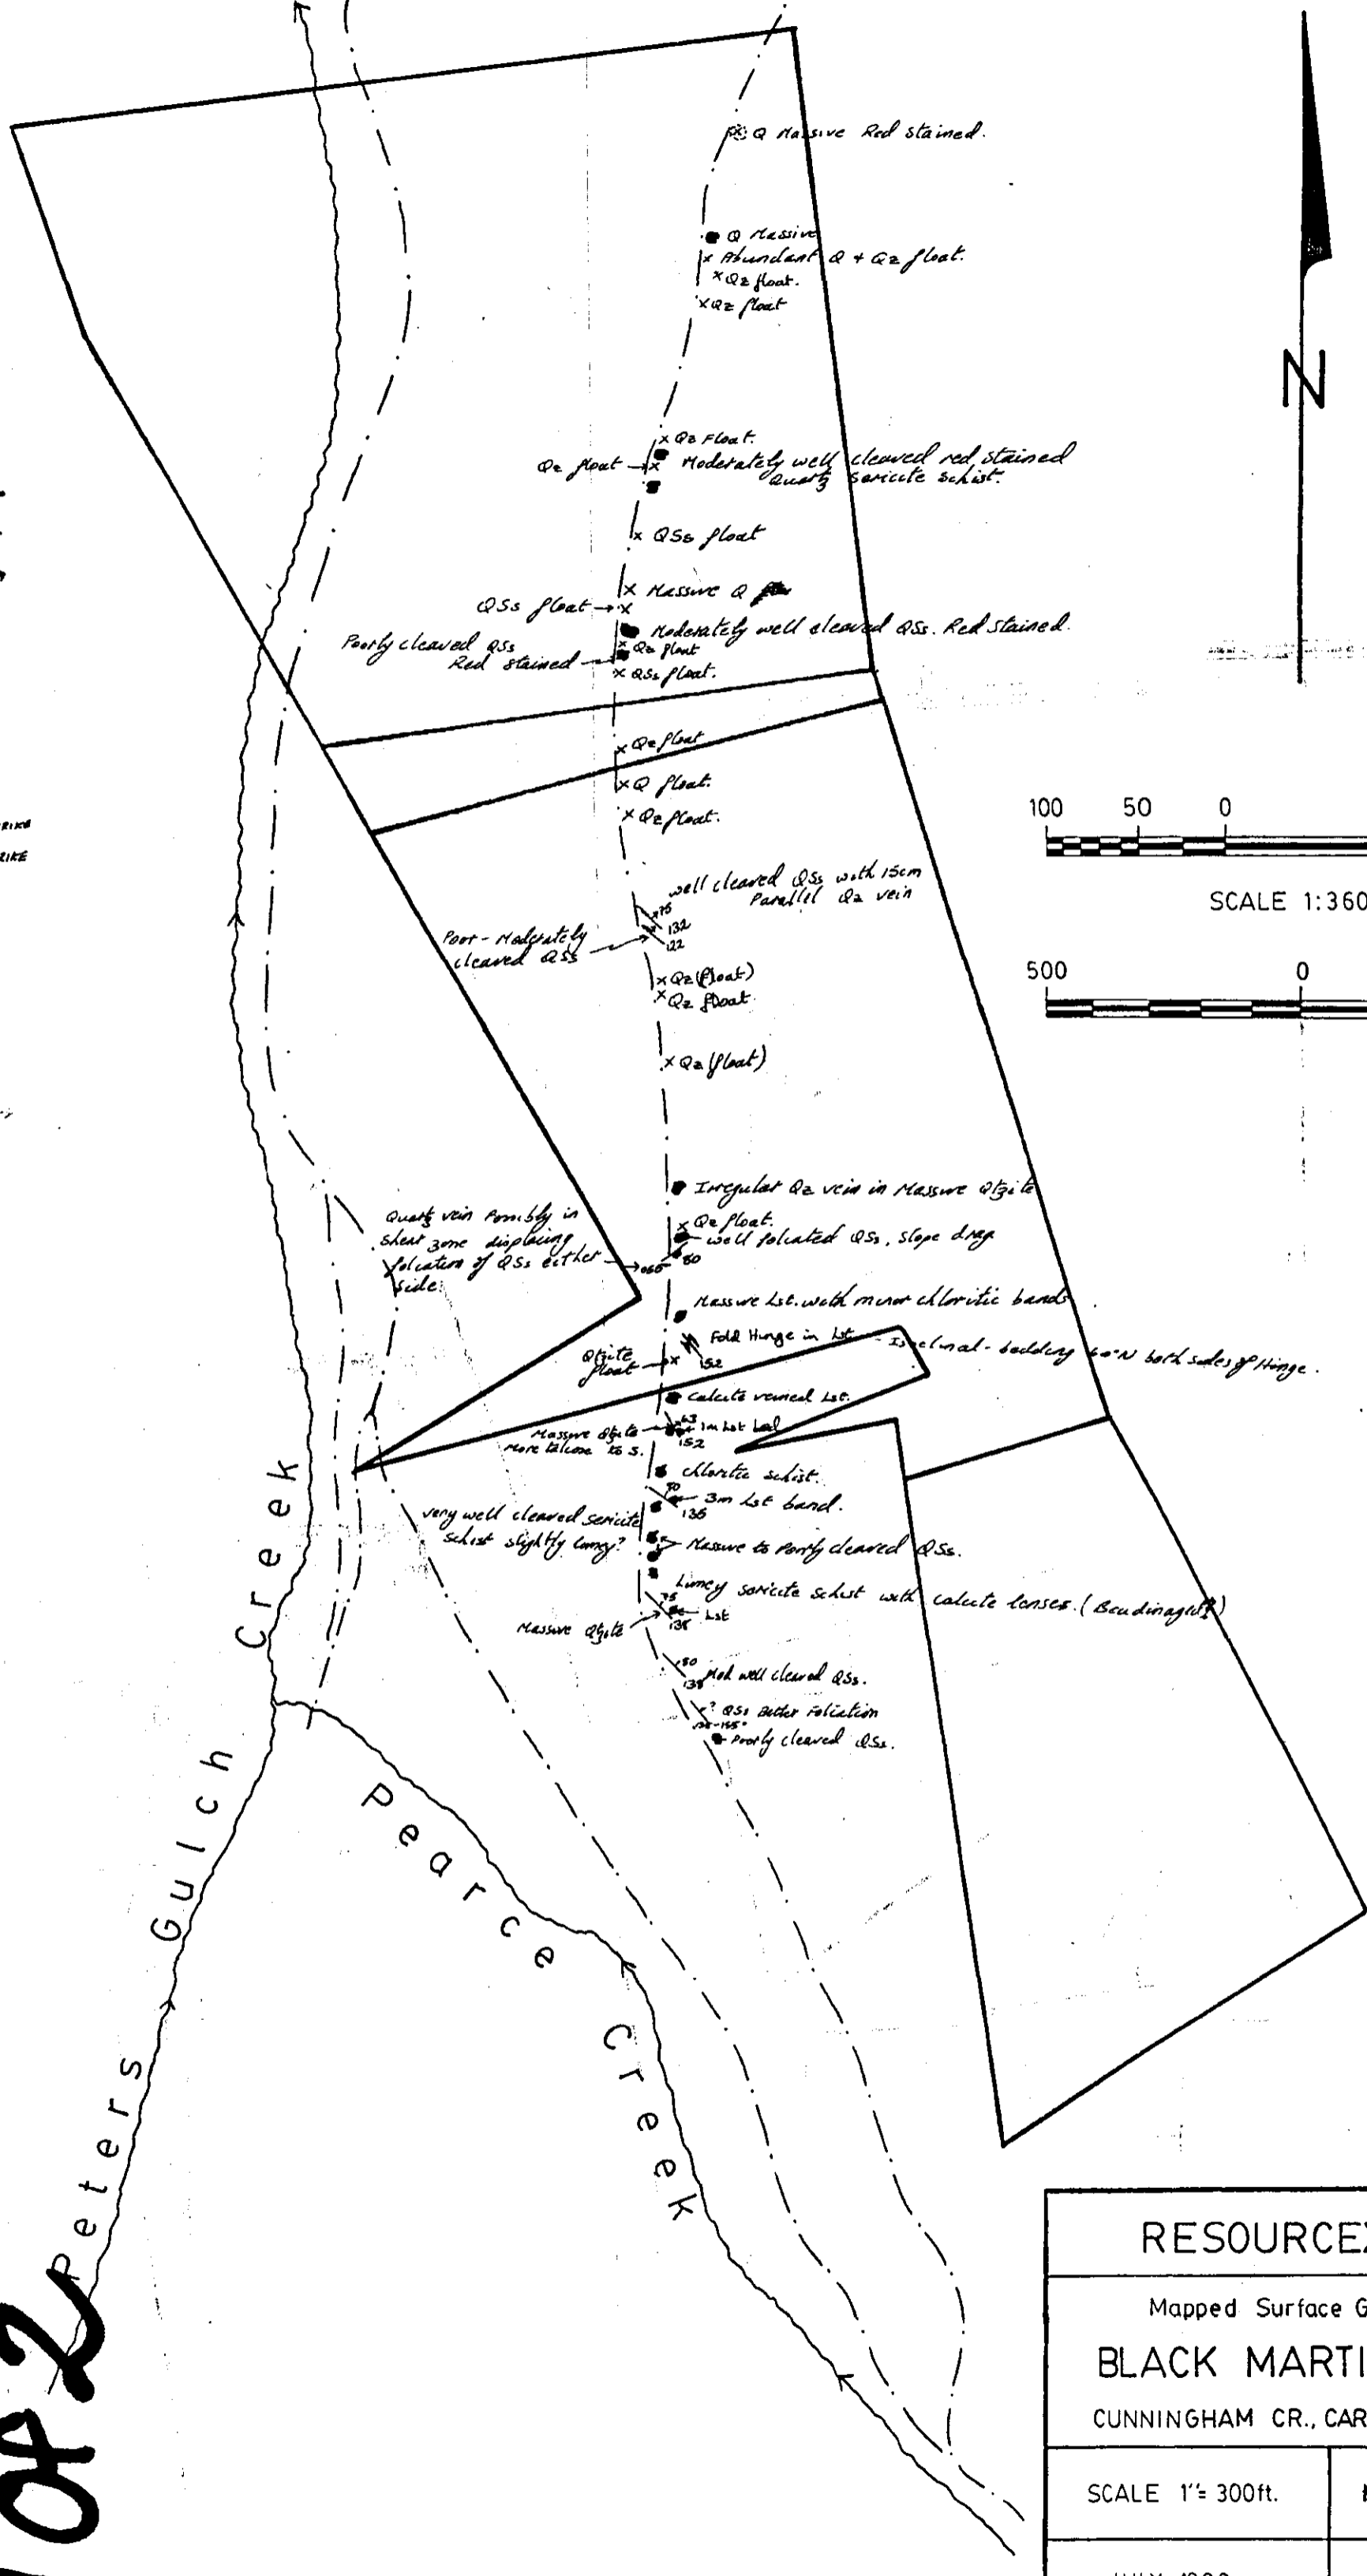 Q Massive Red stained.
Q Massive
Abundant Q + Qz float.
Qz float.
Qz float
N
Qz Float.
Qz float
Moderately well cleaved red stained
Quartz sericite schist.
QSs float
Massive Q
QSs float
Moderately well cleaved QSs. Red stained.
Poorly cleaved QSs
Red stained
Qz float
QSs float.
Qz float
Q float.
Qz float.
100 50 0
SCALE 1:360
500 0
well cleaved QSs with 15cm
Parallel Qz vein
75
132
122
Poor - Moderately
cleaved QSs
Qz (float)
Qz float.
Qz (float)
Irregular Qz vein in Massive Qtzite
Qz float.
well foliated QSs, slope drag
80
Quartz vein Possibly in
shear zone displacing
foliation of QSs either
side.
Massive Lst. with minor chloritic bands
Fold Hinge in Lst - Isoclinal - bedding 60°N both sides of Hinge.
152
Qtzite
float
Calcite veined Lst.
63
1m Lst
152
Massive Qtzite
More talcose to S.
chloritic schist.
70
3m Lst band.
136
very well cleaved sericite
schist slightly limey?
Massive to Poorly cleaved QSs.
Limey sericite schist with calcite lenses. (Boudinaged?)
75
Lst
138
Massive Qtzite
80
138
Mod well cleaved QSs.
? QSs Better Foliation
Poorly cleaved QSs.
Peters Gulch Creek
Pearce Creek
RIKE
RIKE
of 2
RESOURCE
Mapped Surface G
BLACK MARTI
CUNNINGHAM CR., CAR
SCALE 1"= 300ft.